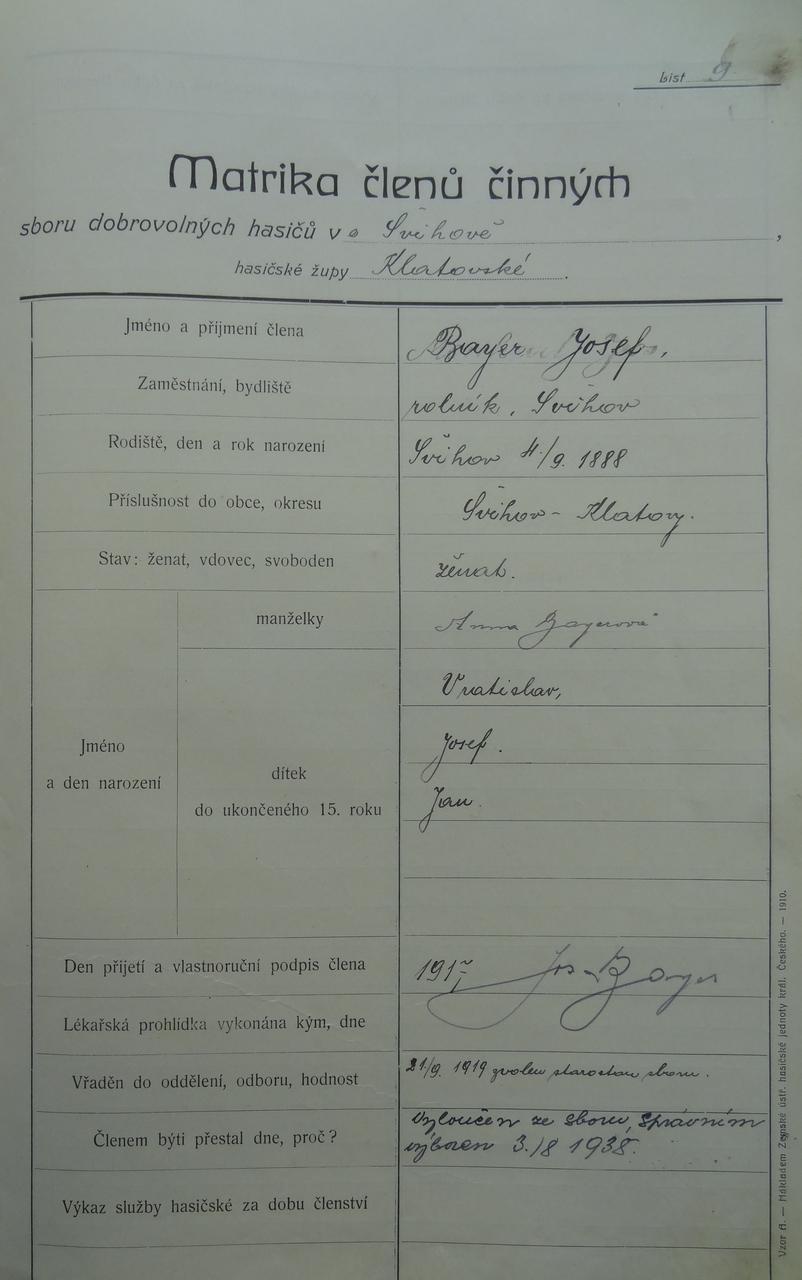 List 9
Matrika členů činných
sboru dobrovolných hasičů v e Švihově ,
hasičské župy Klatovské .
Jméno a příjmení člena Bayer Josef,
Zaměstnání, bydliště rolník, Švihov
Rodiště, den a rok narození Švihov 4/9. 1888
Příslušnost do obce, okresu Švihov - Klatovy.
Stav: ženat, vdovec, svoboden ženat.
manželky Anna Bayerová
Vratislav,
Jméno
a den narození
Josef.
dítek
do ukončeného 15. roku
Jan.
Den přijetí a vlastnoruční podpis člena 1917 Jos. Bayer
Lékařská prohlídka vykonána kým, dne
Vřaděn do oddělení, odboru, hodnost 21/9. 1919 zvolen starostou sboru.
Členem býti přestal dne, proč? Vyloučen ze sboru, správním
výborem 3./8 1938.
Výkaz služby hasičské za dobu členství
Vzor A. — Nákladem Zemské ústř. hasičské jednoty král. Českého. — 1910.